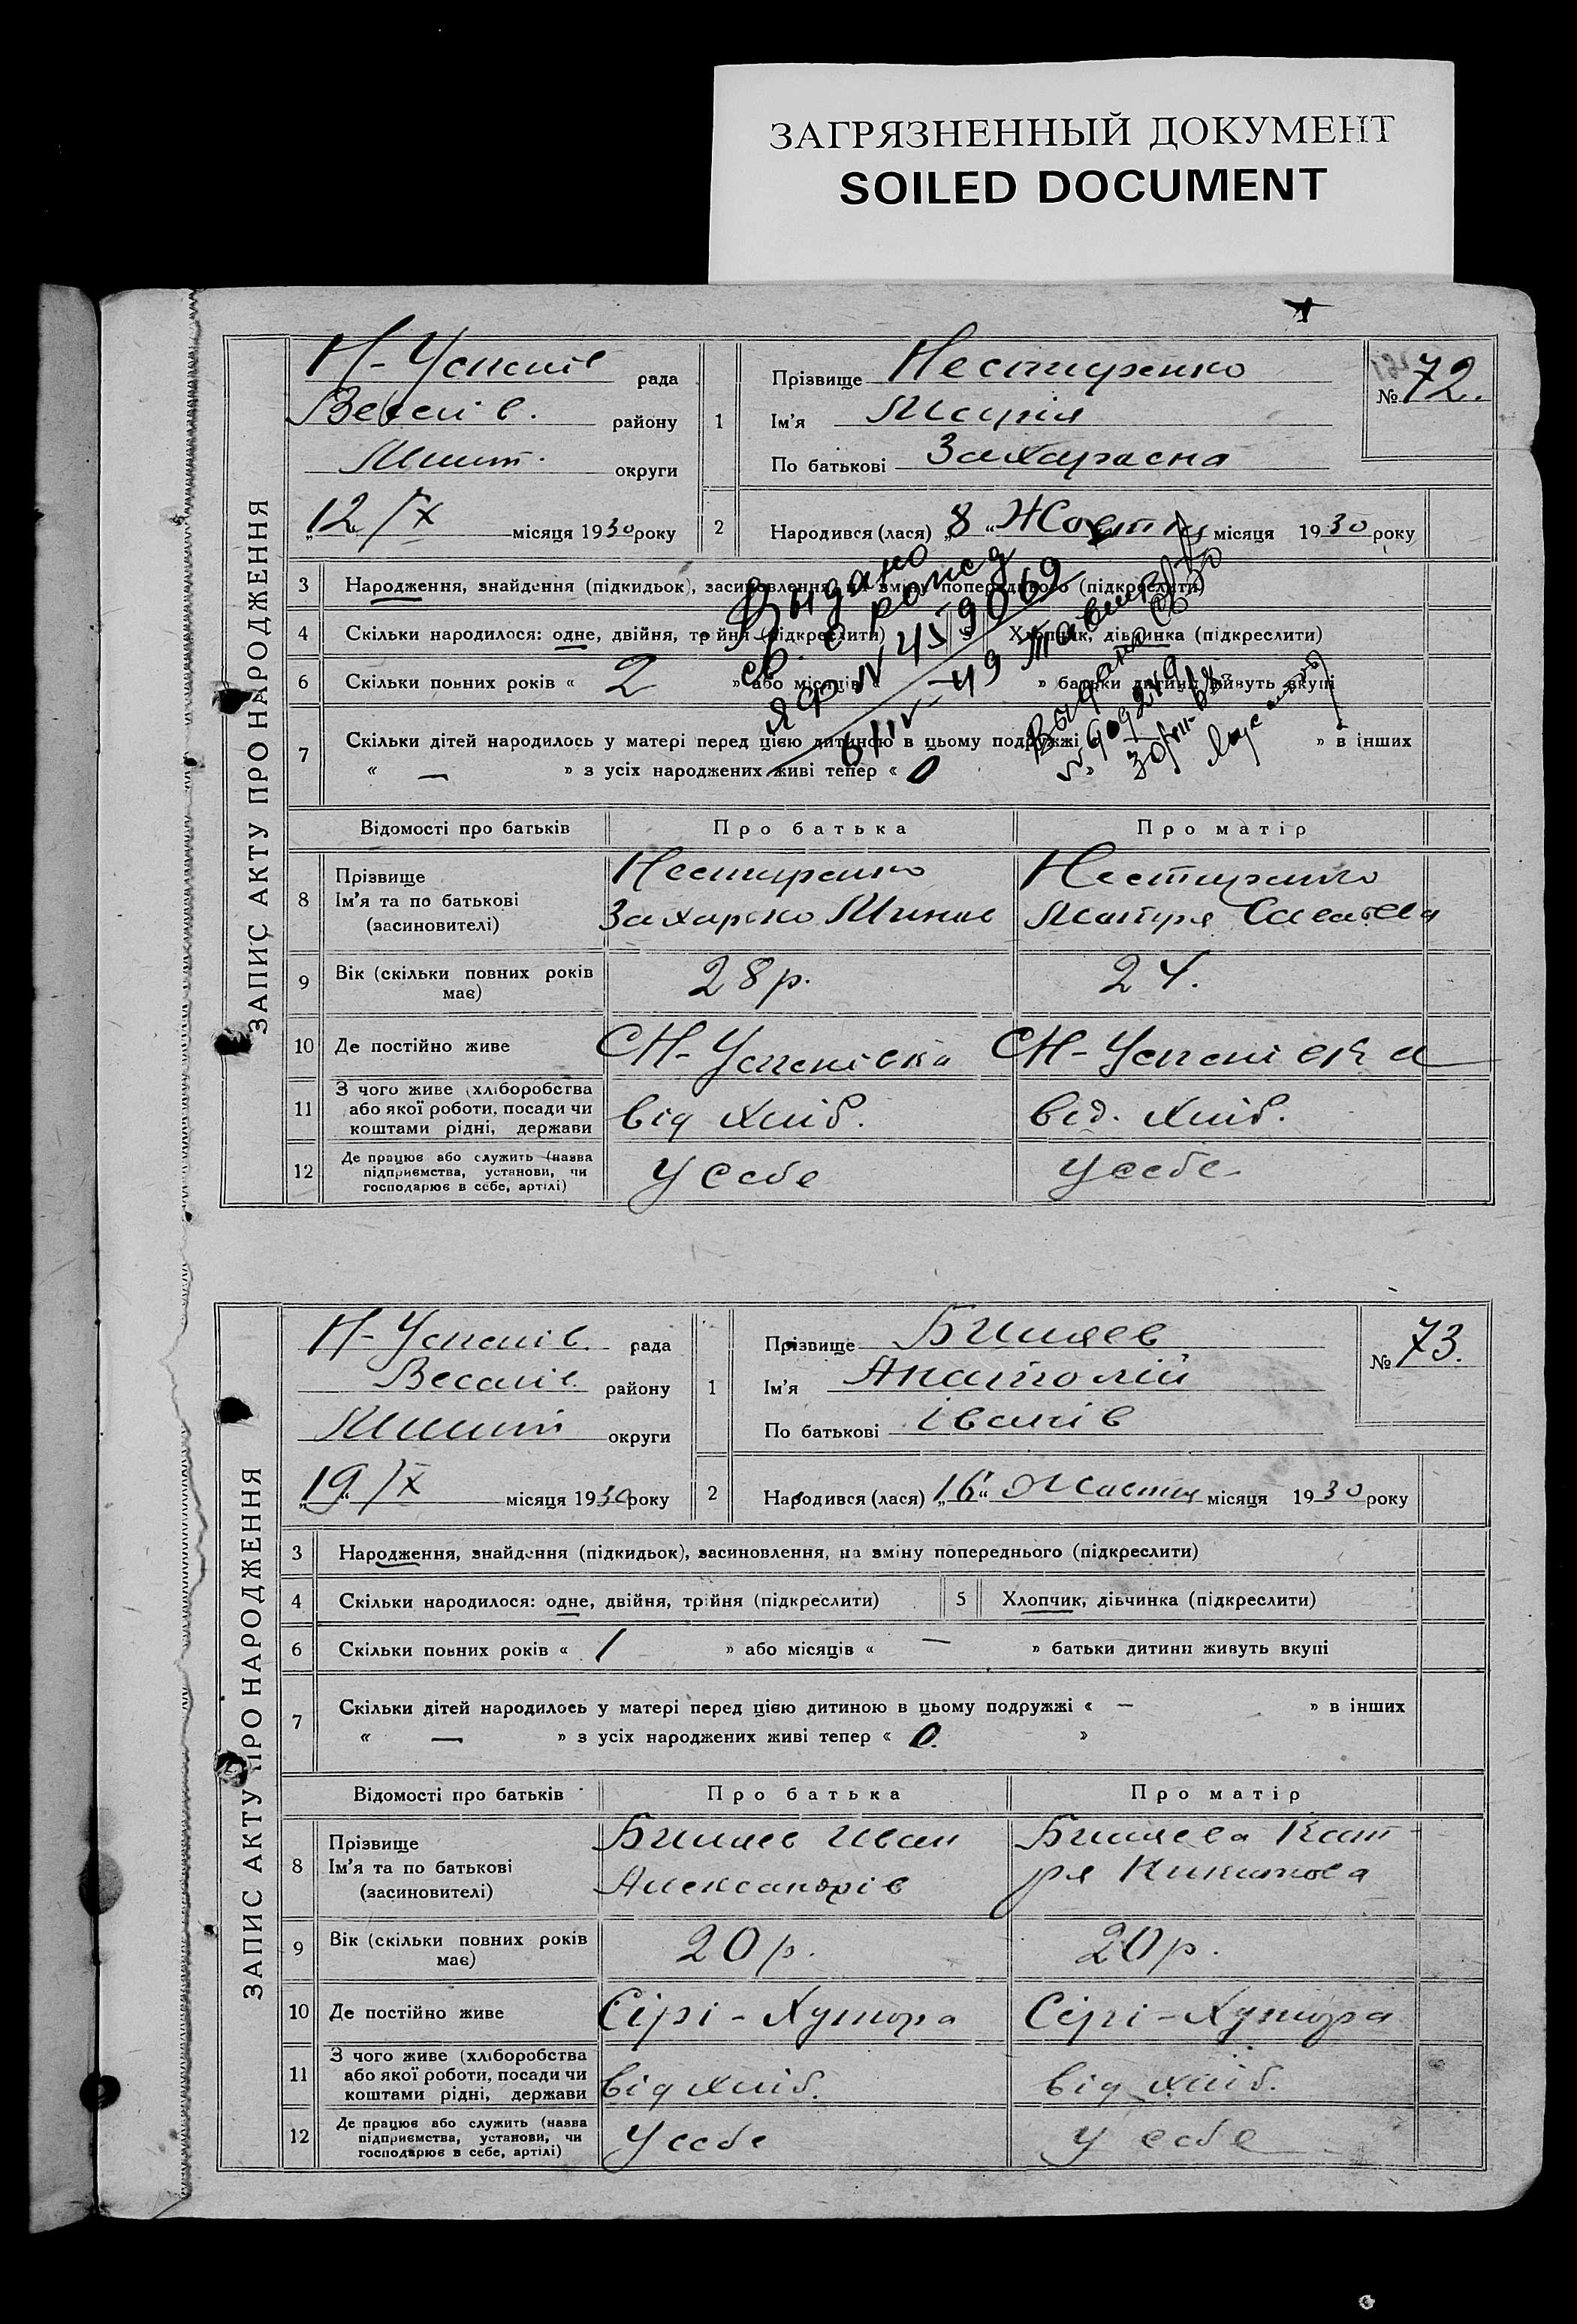 ЗАГРЯЗНЕННЫЙ ДОКУМЕНТ
SOILED DOCUMENT
ЗАПИС АКТУ ПРО НАРОДЖЕННЯ
Н-Успенів рада
Веселів. району
Мелит. округи
„12“ /X місяця 1930 року
1
Прізвище Нестиренко
Ім'я Марія
По батькові Захарасна
№ 72.
2 Народився (лася) „8“ Жовтня місяця 1930 року
3 Народження, знайдення (підкидьок), засиновлення, на зміну попереднього (підкреслити)
4 Скільки народилося: одне, двійня, трійня (підкреслити) 5 Хлопчик, дівчинка (підкреслити)
6 Скільки повних років « 2 » або місяців « » батьки дитини живуть вкупі
7 Скільки дітей народилось у матері перед цією дитиною в цьому подружжі « » в інших
« — » з усіх народжених живі тепер « 0 »
Выдано
св. о рожд
ЯФ N 459069
6/IV-49
Выдано
30/VII-68
Відомості про батьків Про батька Про матір
8 Прізвище
Ім'я та по батькові
(засиновителі)
Нестиренко
Захарко Минов
Нестиренко
9 Вік (скільки повних років має) 28 р. 24.
10 Де постійно живе СН-Успенівка СН-Успенівка
11 З чого живе (хліборобства
або якої роботи, посади чи
коштами рідні, держави
від хліб. від. хліб.
12 Де працює або служить (назва
підприємства, установи, чи
господарює в себе, артілі)
У себе У себе
ЗАПИС АКТУ ПРО НАРОДЖЕННЯ
Н-Успенів. рада
Веселів. району
Мелит округи
„19“ /X місяця 1930 року
1
Прізвище Биляев
Ім'я Анатолій
По батькові Іванів
№ 73.
2 Народився (лася) „16“ Жовтня місяця 1930 року
3 Народження, знайдення (підкидьок), засиновлення, на зміну попереднього (підкреслити)
4 Скільки народилося: одне, двійня, трійня (підкреслити) 5 Хлопчик, дівчинка (підкреслити)
6 Скільки повних років « 1 » або місяців « — » батьки дитини живуть вкупі
7 Скільки дітей народилось у матері перед цією дитиною в цьому подружжі « — » в інших
« — » з усіх народжених живі тепер « 0. »
Відомості про батьків Про батька Про матір
8 Прізвище
Ім'я та по батькові
(засиновителі)
Биляев Иван
Александрів
Биляева Кат-
ря Никитова
9 Вік (скільки повних років має) 20 р. 20 р.
10 Де постійно живе Сірі-Хутора Сірі-Хутора
11 З чого живе (хліборобства
або якої роботи, посади чи
коштами рідні, держави
від хліб. від хліб.
12 Де працює або служить (назва
підприємства, установи, чи
господарює в себе, артілі)
У себе У себе